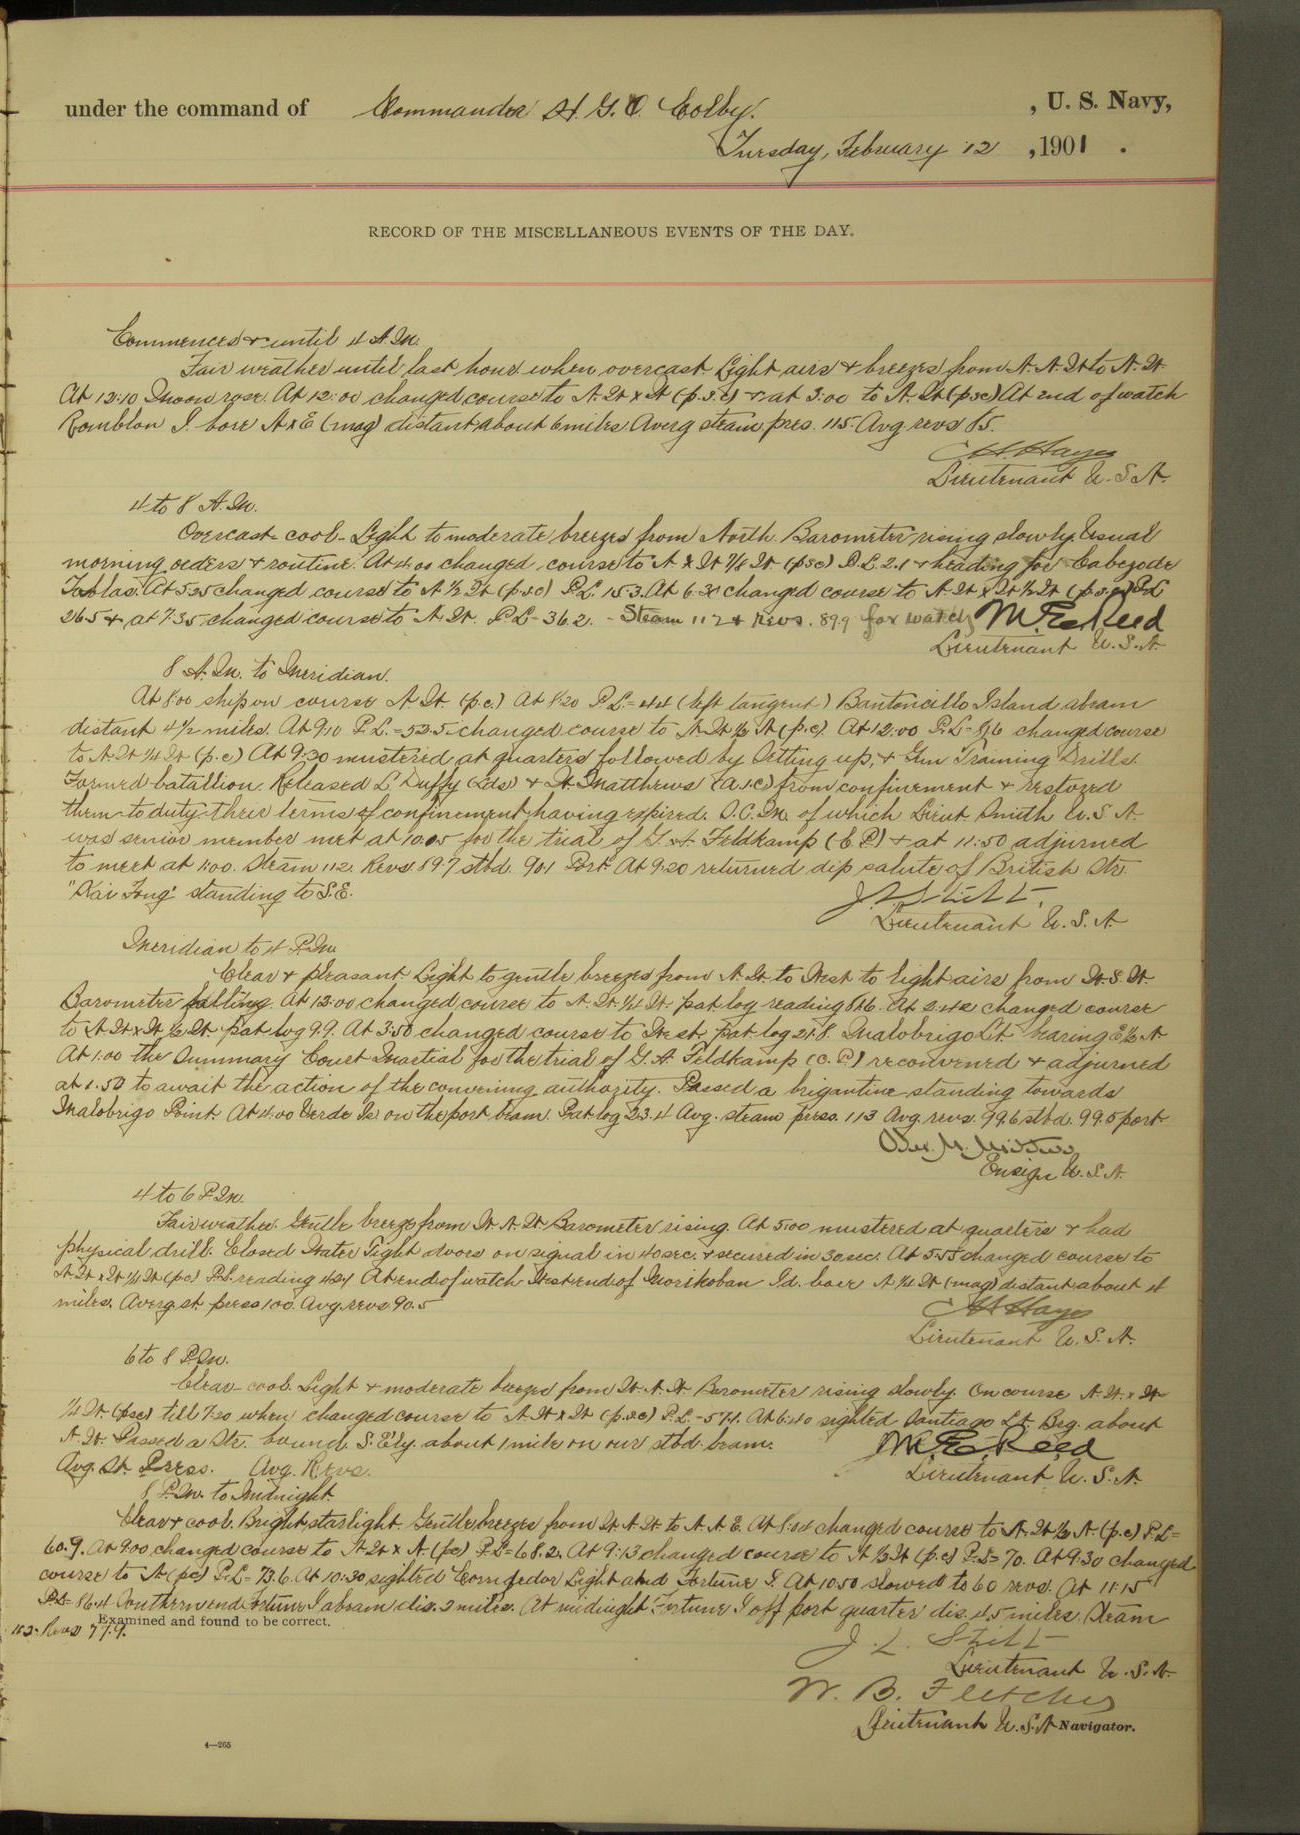 under the command of Commander H. G. O. Colby. , U. S. Navy,
Tuesday, February 12 , 1901 .
RECORD OF THE MISCELLANEOUS EVENTS OF THE DAY.
Commences & until 4 A.M.
Fair weather until last hour when overcast. Light airs & breezes from N.N.W to N.W.
At 12:10 Moon rose. At 12:00 changed course to N.W x N (p.s.c) & at 3:00 to N.W (psc) At end of watch
Romblon I. bore N x E (mag) distant about 6 miles. Averg steam pres. 115. Avg revs 85.
C H. Hayes
Lieutenant U. S. N.
4 to 8 A.M.
Overcast - cool - Light to moderate breezes from North. Barometer rising slowly. Usual
morning orders & routine. At 4:00 changed course to N x W 7/8 W. (psc) P.L. 2.1 & heading for Cabezo de
Tablas. At 5:25 changed course to N ½ W (p.s.c) P.L. 15.3. At 6:30 changed course to N.W x W ½ W (p.s.c) P.L
26.5 & at 7:35 changed course to N.W. P.L - 36.2. - Steam 112 & revs. 89.9 for watch M. E. Reed
Lieutenant U.S.N.
8 A.M. to Meridian.
At 8:00 ship on course N.W. (p.c.) At 8:20 P.L. = 44 (left tangent) Bantoncillo Island abeam
distant 4½ miles. At 9:10 P.L. = 52.5 changed course to N.W ½ N (p.c). At 12:00 P.L - 81.6 changed course
to N.W ¼ W (p.c) At 9:30 mustered at quarters followed by Setting up, & Gun Training Drills.
Formed battallion. Released L. Duffy (Lds) & W. Matthews (a.s.c) from confinement & restored
them to duty their terms of confinement having expired. S.C.M. of which Lieut. Smith U.S.N.
was senior member met at 10:05 for the trial of G. A. Feldkamp (C.P.) & at 11:50 adjurned
to meet at 1:00. Steam 112. Revs 89.7 stbd. 90.1 Port. At 9:20 returned dip salute of British Str.
"Kai Fong" standing to S.E.
J. L. Sticht.
Lieutenant U. S. N.
Meridian to 4 P.M.
Clear & pleasant. Light to gentle breezes from N.W. to West to light airs from W.S.W.
Barometer falling. At 12:00 changed course to N.W. ¼ W. pat log reading 81.6. At 2:42 changed course
to N W x W ½ W. pat log 9.9. At 3:50 changed course to West, pat. log 21.8. Malobrigo Lt. bearing N.
At 1:00 the Summary Court Martial for the trial of G. A. Feldkamp (C. P.) reconvened & adjourned
at 1:50 to await the action of the convening authority. Passed a brigantine standing towards
Malobrigo Point. At 4:00 Verde Is. on the port beam. Pat log 23.4 Avg. steam press. 113 Avg. revs. 99.6 stbd. 99.5 port.
Ensign U.S.N.
4 to 6 P.M.
Fair weather. Gentle breeze from W.N.W. Barometer rising. At 5:00 mustered at quarters & had
physical drill. Closed Water Tight doors on signal in 40 sec. & secured in 30 sec. At 5:55 changed course to
N.W x W ¼ W (pc) P.L. reading 42.4 At end of watch West end of Maricaban Id. bore N. ¼ W (mag) distant about 4
miles. Averg. st. press 100. Avg. revs 90.5
C H Hayes
Lieutenant U. S. N.
6 to 8 P.M.
Clear - cool. Light & moderate breezes from W.N.W. Barometer rising slowly. On course N.W. x W
¼ W. (psc) till 7:20 when changed course to N.W x W (p.s.c) P.L. - 57.1. At 6:40 sighted Santiago Lt. Brg. about
N.W. Passed a Str. bound S.E'ly. about 1 mile on our stbd. beam.
M. E. Reed
Avg. St. Press. Avg. Revs.
Lieutenant U. S. N.
8 P.M. to Midnight.
Clear & cool. Bright starlight. Gentle breezes from W.N.W. to N.N.E. At 8:04 changed course to N.W ½ N (p.c) P.L =
60.9. At 9:00 changed course to N W x N (pc) P.L = 68.2. At 9:13 changed course to N ½ W (p.c) P.L = 70. At 9:30 changed
course to N (pc) P.L = 73.6. At 10:30 sighted Corregedor Light and Fortune I. At 10:50 slowed to 60 revs. At 11:15
P.L = 86.4 Southern end Fortune I abeam dis. 2 miles. At midnight Fortune I off port quarter dis. 4.5 miles. Steam
Examined and found to be correct.
113. Revs 77.9.
J. L. Sticht
Lieutenant U. S. N.
W. B. Fletcher
Lieutenant U.S.N Navigator.
4—265